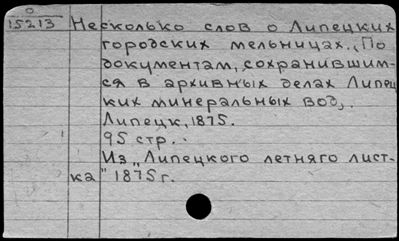 О
15213 Несколько слов о Липецких
городских мельницах. (По
документам, сохранившим-
ся в архивных делах Липец
ких минеральных вод).
Липецк, 1875.
95 стр.
Из „Липецкого летняго лист-
ка" 1875 г.